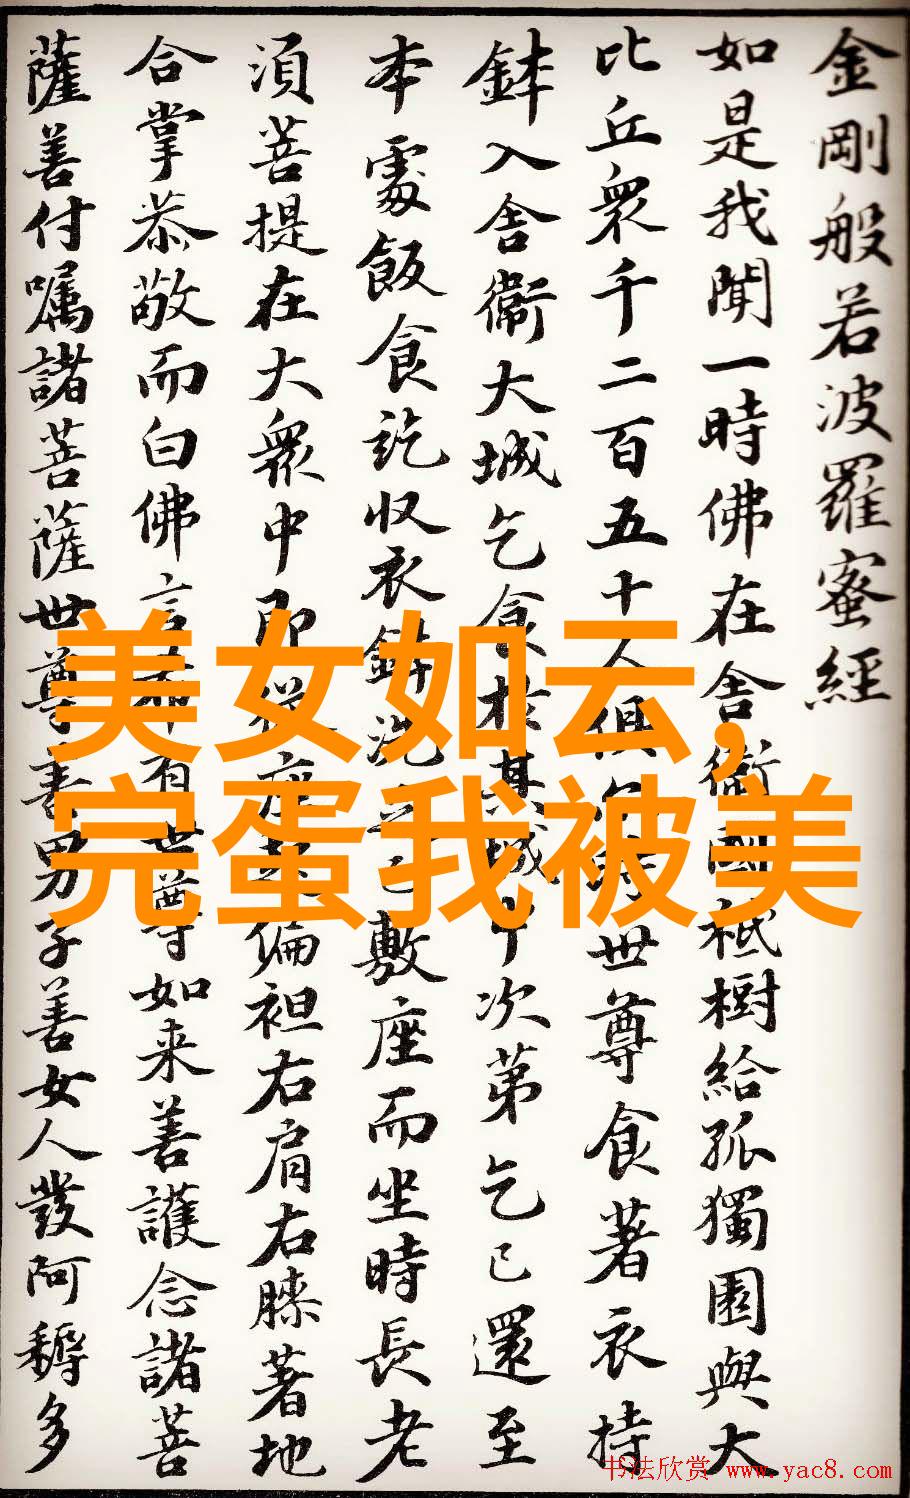 金剛般若波羅蜜經
如是我聞一時佛在舍衞國祇樹給孤獨園與大
比丘衆千二百五十人俱時世尊食著衣持
鉢入舍衞大城乞食於其城中次第乞已還至
本處飯食訖収衣鉢洗已敷座而坐時長老
須菩提在大衆中即從座偏袒右肩右膝著地
合掌恭敬而白佛言希有世尊如来善護念諸菩
薩善付嘱諸菩薩世尊善男子善女人發阿耨多
美女如云,
完蛋我被美
书法欣赏 www.yac8.com